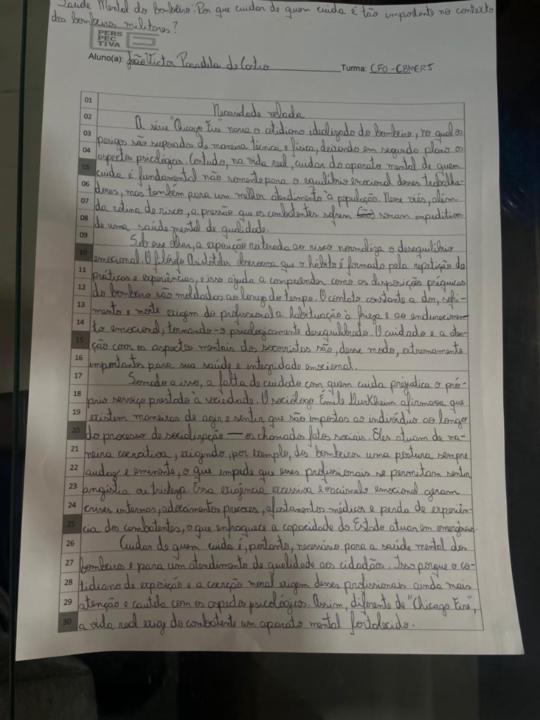 Saúde Mental do bombeiro: Por que cuidar de quem cuida é tão importante no contexto
dos bombeiros militares?
PERS
PEC
TIVA
Aluno(a): João Victor de Castro Turma: CFO - CBMERJ
01 Necessidade velada
02 A série "Chicago Fire" narra o cotidiano idealizado do bombeiro, no qual os
03 perigos são superados de maneira técnica e física, deixando em segundo plano os
04 aspectos psicológicos. Contudo, na vida real, cuidar do aparato mental de quem
05 cuida é fundamental não somente para o equilíbrio emocional desses trabalha-
06 dores, mas também para um melhor atendimento à população. Nesse viés, além
07 da rotina de risco, a pressão que os combatentes sofrem
08 de uma saúde mental de qualidade.
09 Sob esse olhar, a exposição reiterada ao risco normaliza o desequilíbrio
10 emocional. O filósofo Aristóteles que o hábito é formado pela repetição de
11 práticas e experiências, e isso ajuda a compreender como as disposições psíquicas
12 do bombeiro são moldadas ao longo do tempo. O contato constante a dor, sofri-
13 mento e morte exigem do profissional a habituação à frieza e ao endurecimen-
14 to emocional, tornando-o psicologicamente desequilibrado. O cuidado e a aten-
15 ção com os aspectos mentais dos socorristas são, desse modo, extremamente
16 importantes para sua saúde e integridade emocional.
17 Somado a isso, a falta de cuidado com quem cuida prejudica o pró-
18 prio serviço prestado à sociedade. O sociólogo Émile Durkheim afirmava que
19 existem maneiras de agir e sentir que são impostas ao indivíduo ao longo
20 do processo de socialização — os chamados fatos sociais. Eles atuam de ma-
21 neira coercitiva, exigindo, por exemplo, dos bombeiros uma postura sempre
22 audaz e, o que impede que esses profissionais se permitam sentir
23 angústia ou tristeza. Essa exigência excessiva e emocional geram
24 crises internas, adoecimentos precoces, afastamentos médicos e perda de experiên-
25 cia dos combatentes, o que enfraquece a capacidade do Estado atuar em emergências.
26 Cuidar de quem cuida é, portanto, necessário para a saúde mental dos
27 bombeiros e para um atendimento de qualidade aos cidadãos. Isso porque o co-
28 tidiano de exposição e a coerção moral exigem desses profissionais ainda mais
29 atenção e cautela com os aspectos psicológicos. Assim, diferente de "Chicago Fire",
30 a vida real exige do combatente um aparato mental fortalecido.